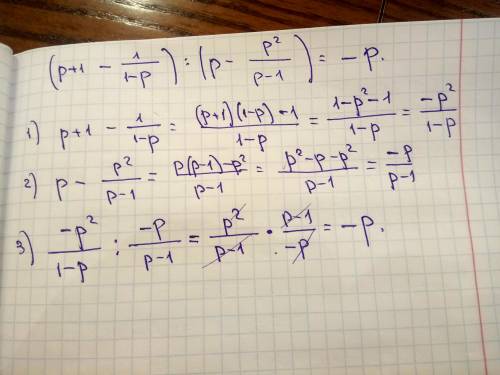 (p+1 - 1/(1-p)) : (p - p²/(p-1)) = -p.
1) p+1 - 1/(1-p) = ((p+1)(1-p)-1)/(1-p) = (1-p²-1)/(1-p) = -p²/(1-p)
2) p - p²/(p-1) = (p(p-1)-p²)/(p-1) = (p²-p-p²)/(p-1) = -p/(p-1)
3) -p²/(1-p) : -p/(p-1) = p²/(p-1) · (p-1)/(-p) = -p.